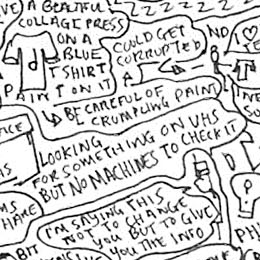 A BEAUTIFUL
COLLAGE PRESS
ON A
BLUE
T SHIRT
PAINT ON IT
Z Z Z Z Z Z Z
COULD GET
CORRUPTED
NO
I
T
BE CAREFUL OF
CRUMPLING PAINT
LOOKING
FOR SOMETHING ON VHS
BUT NO MACHINES TO CHECK IT
I'M SAYING THIS
NOT TO CHANGE
YOU BUT TO GIVE
YOU THE INFO
BIT